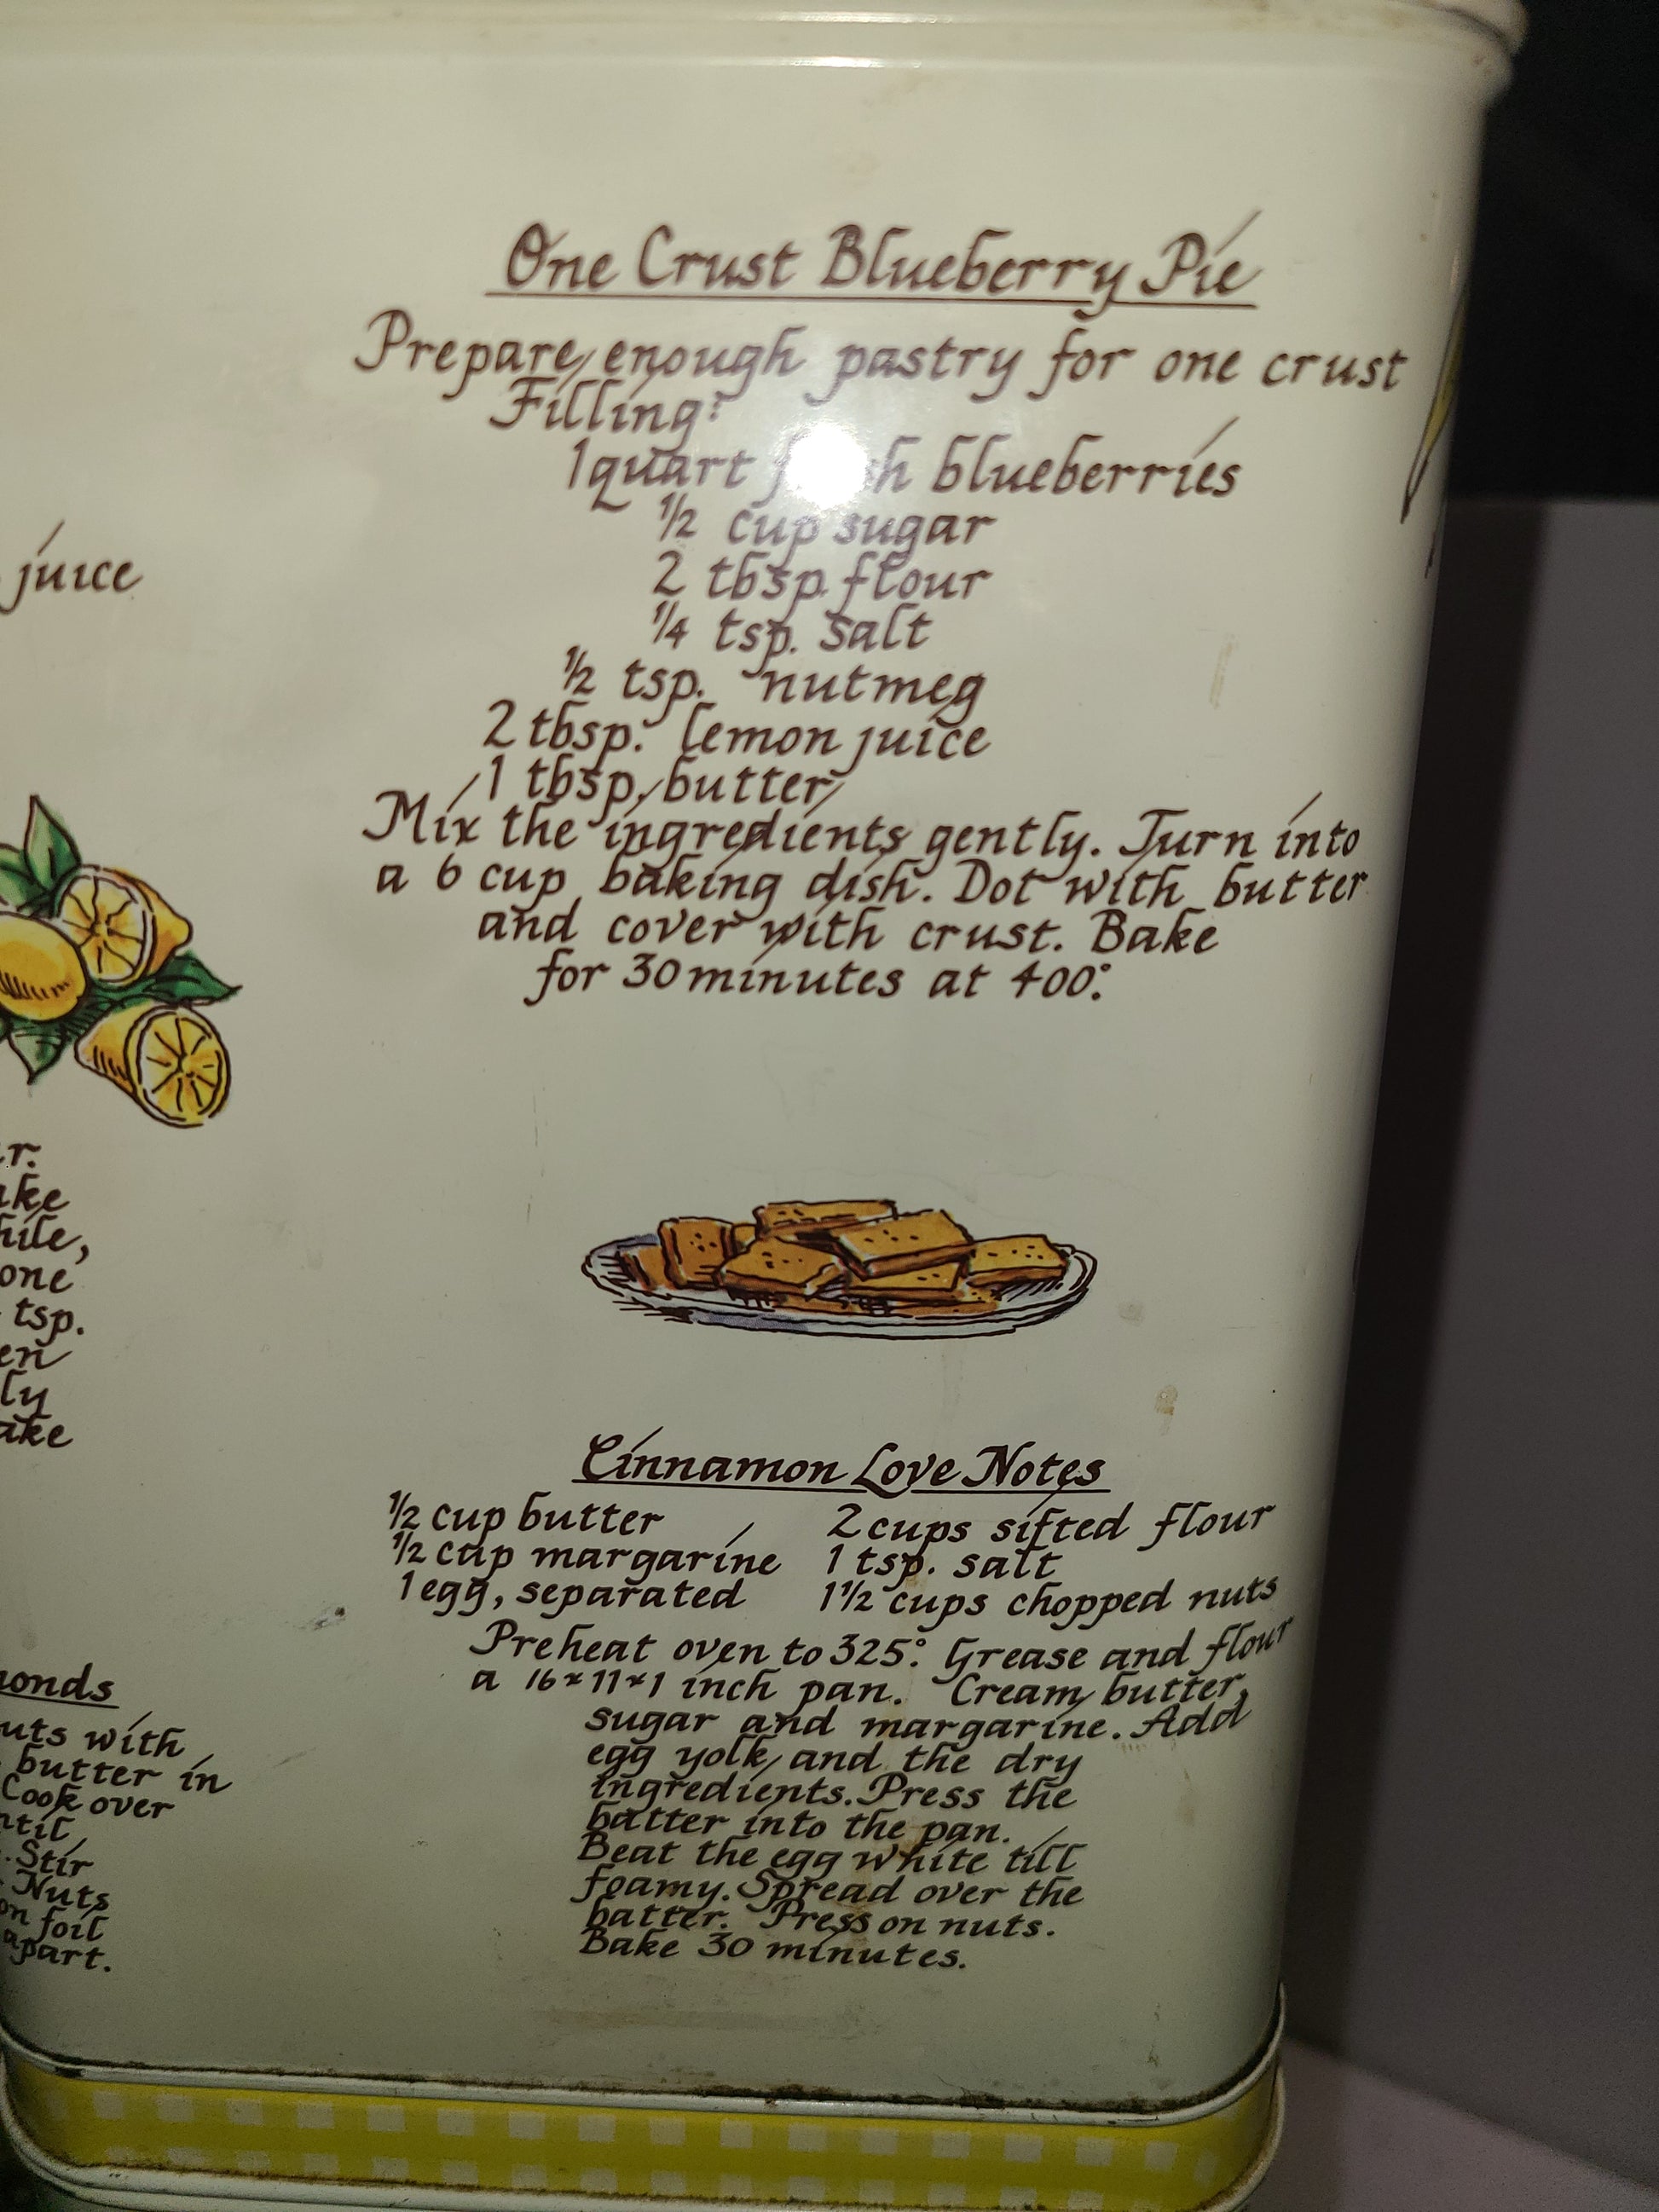 One Crust Blueberry Pie
Prepare enough pastry for one crust
Filling:
1 quart blueberries
1/2 cup sugar
2 tbsp. flour
1/4 tsp. salt
1/2 tsp. nutmeg
2 tbsp. lemon juice
1 tbsp. butter
Mix the ingredients gently. Turn into
a 6 cup baking dish. Dot with butter
and cover with crust. Bake
for 30 minutes at 400°.
Cinnamon Love Notes
1/2 cup butter
1/2 cup margarine
1 egg, separated
2 cups sifted flour
1 tsp. salt
1 1/2 cups chopped nuts
Preheat oven to 325°. Grease and flour
a 16x11x1 inch pan. Cream butter,
sugar and margarine. Add
egg yolk and the dry
ingredients. Press the
batter into the pan.
Beat the egg white till
foamy. Spread over the
batter. Press on nuts.
Bake 30 minutes.
juice
one
tsp.
with
butter in
Cook over
Stir
Nuts
foil
apart.